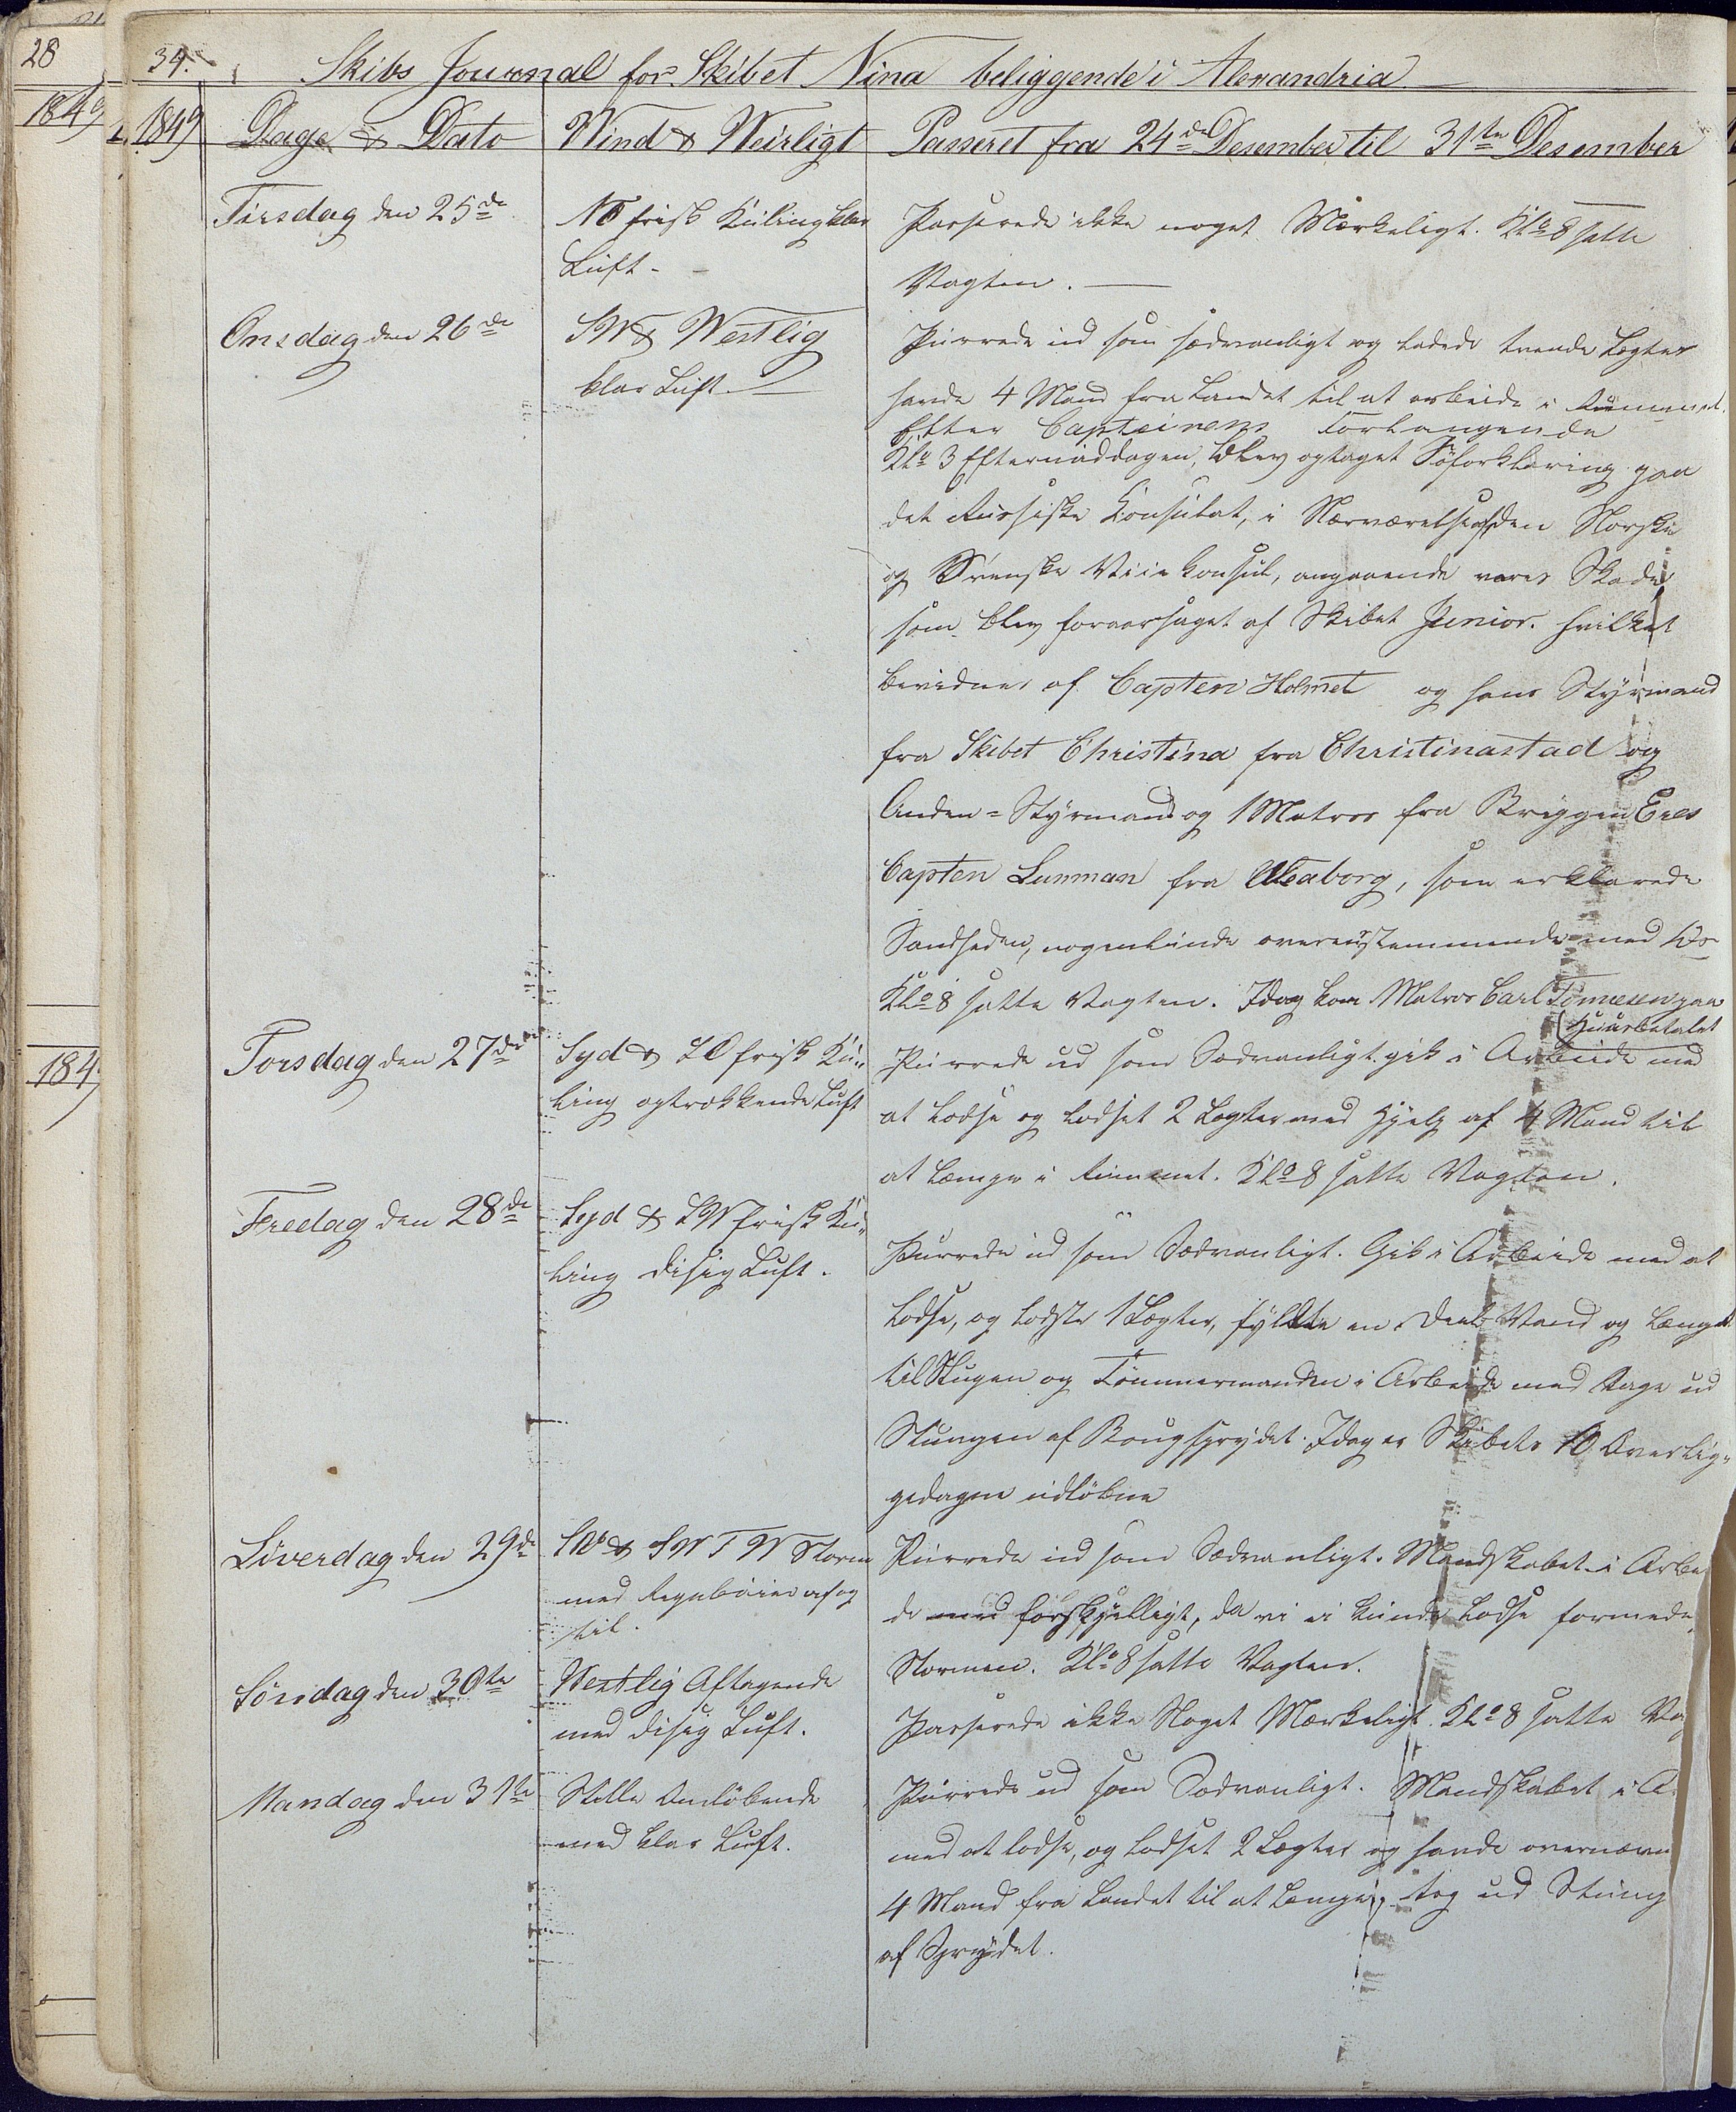 28
1849
184
34.
Skibs Journal for Skibet Nina beliggende i Alexandria
1849 Dage & Dato Wind & Weirligt Passeret fra 24de Desember til 31te Desember
Tirsdag den 25de
NO frisk Kuling klar
Luft.
Passerede ikke noget Mærkeligt. Klo 8 satte
Vagten.
Onsdag den 26de
SW & Westlig
klar Luft
Purrede ud som sædvanligt og lodsede tvende Lægter
havde 4 Mand fra Landet til at arbeide i Rummet.
Efter Capteinens Forlangende
Klo 3 Eftermiddagen, blev optaget Søforklaring paa
det Russiske Konsulat, i Nærværelse af den Norske
og Svenske Vice Konsul, angaaende vores Skade
som blev foraarsaget af Skibet Junior. hvilket
bevidnes af Capten Holmet og hans Styrmand
fra Skibet Christina fra Christinastad og
Anden-Styrmand og 1 Matros fra Briggen Eres
Capten Lunman fra Uleaborg, som erklærede
Sandheden, nogenlunde overenstemmende med
Klo 8 satte Vagten. Idag kom Matros Carl Tønnesen paa
Torsdag den 27de
Syd & SO frisk Ku-
ling optrækkende Luft
Purrede ud som Sædvanligt. gik i Arbeide med
at lodse og lodset 2 Lægter med Hjelp af 4 Mand til
at lempe i Rummet. Klo 8 satte Vagten.
Fredag den 28de
Syd & SW frisk Ku-
ling disig Luft.
Purrede ud som Sædvanligt. Gik i Arbeide med at
lodse, og lodste 1 Lægter, fyldte en Deel Vand og
og Tømmermanden i Arbeide med tage ud
Stungen af Bougsprydet. Idag er Skibets 10 Overlig-
gedagene udløbne
Løverdag den 29de
SW & SWTW Storm
med Regnbøier af og
til.
Purrede ud som Sædvanligt. Mandskabet i Arbe
de med forskjelligt, da vi ei kunde lodse formede
Stormen. Klo 8 satte Vagten.
Søndag den 30te
Westlig Aftagende
med disig Luft.
Passerede ikke Noget Mærkeligt. Klo 8 satte Va
Mandag den 31te
Stille Omløbende
med klar Luft.
Purrede ud som Sædvanligt. Mandskabet i A
med at lodse, og lodset 2 Lægter og havde overnævn
4 Mand fra Landet til at lempe, tog ud Stung
af Sprydet.